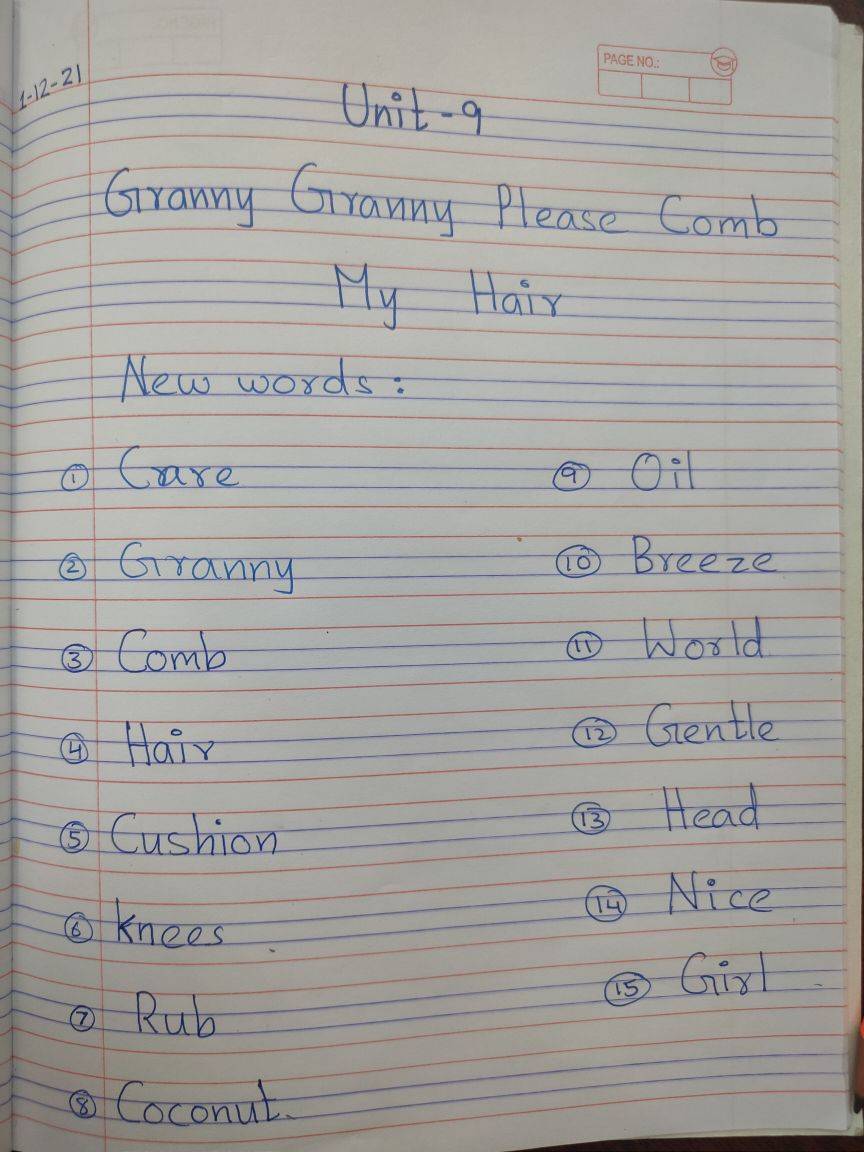 PAGE NO.:
1-12-21
Unit-9
Granny Granny Please Comb
My Hair
New words:
① Care
② Granny
③ Comb
④ Hair
⑤ Cushion
⑥ knees
⑦ Rub
⑧ Coconut.
⑨ Oil
⑩ Breeze
⑪ World
⑫ Gentle
⑬ Head
⑭ Nice
⑮ Girl